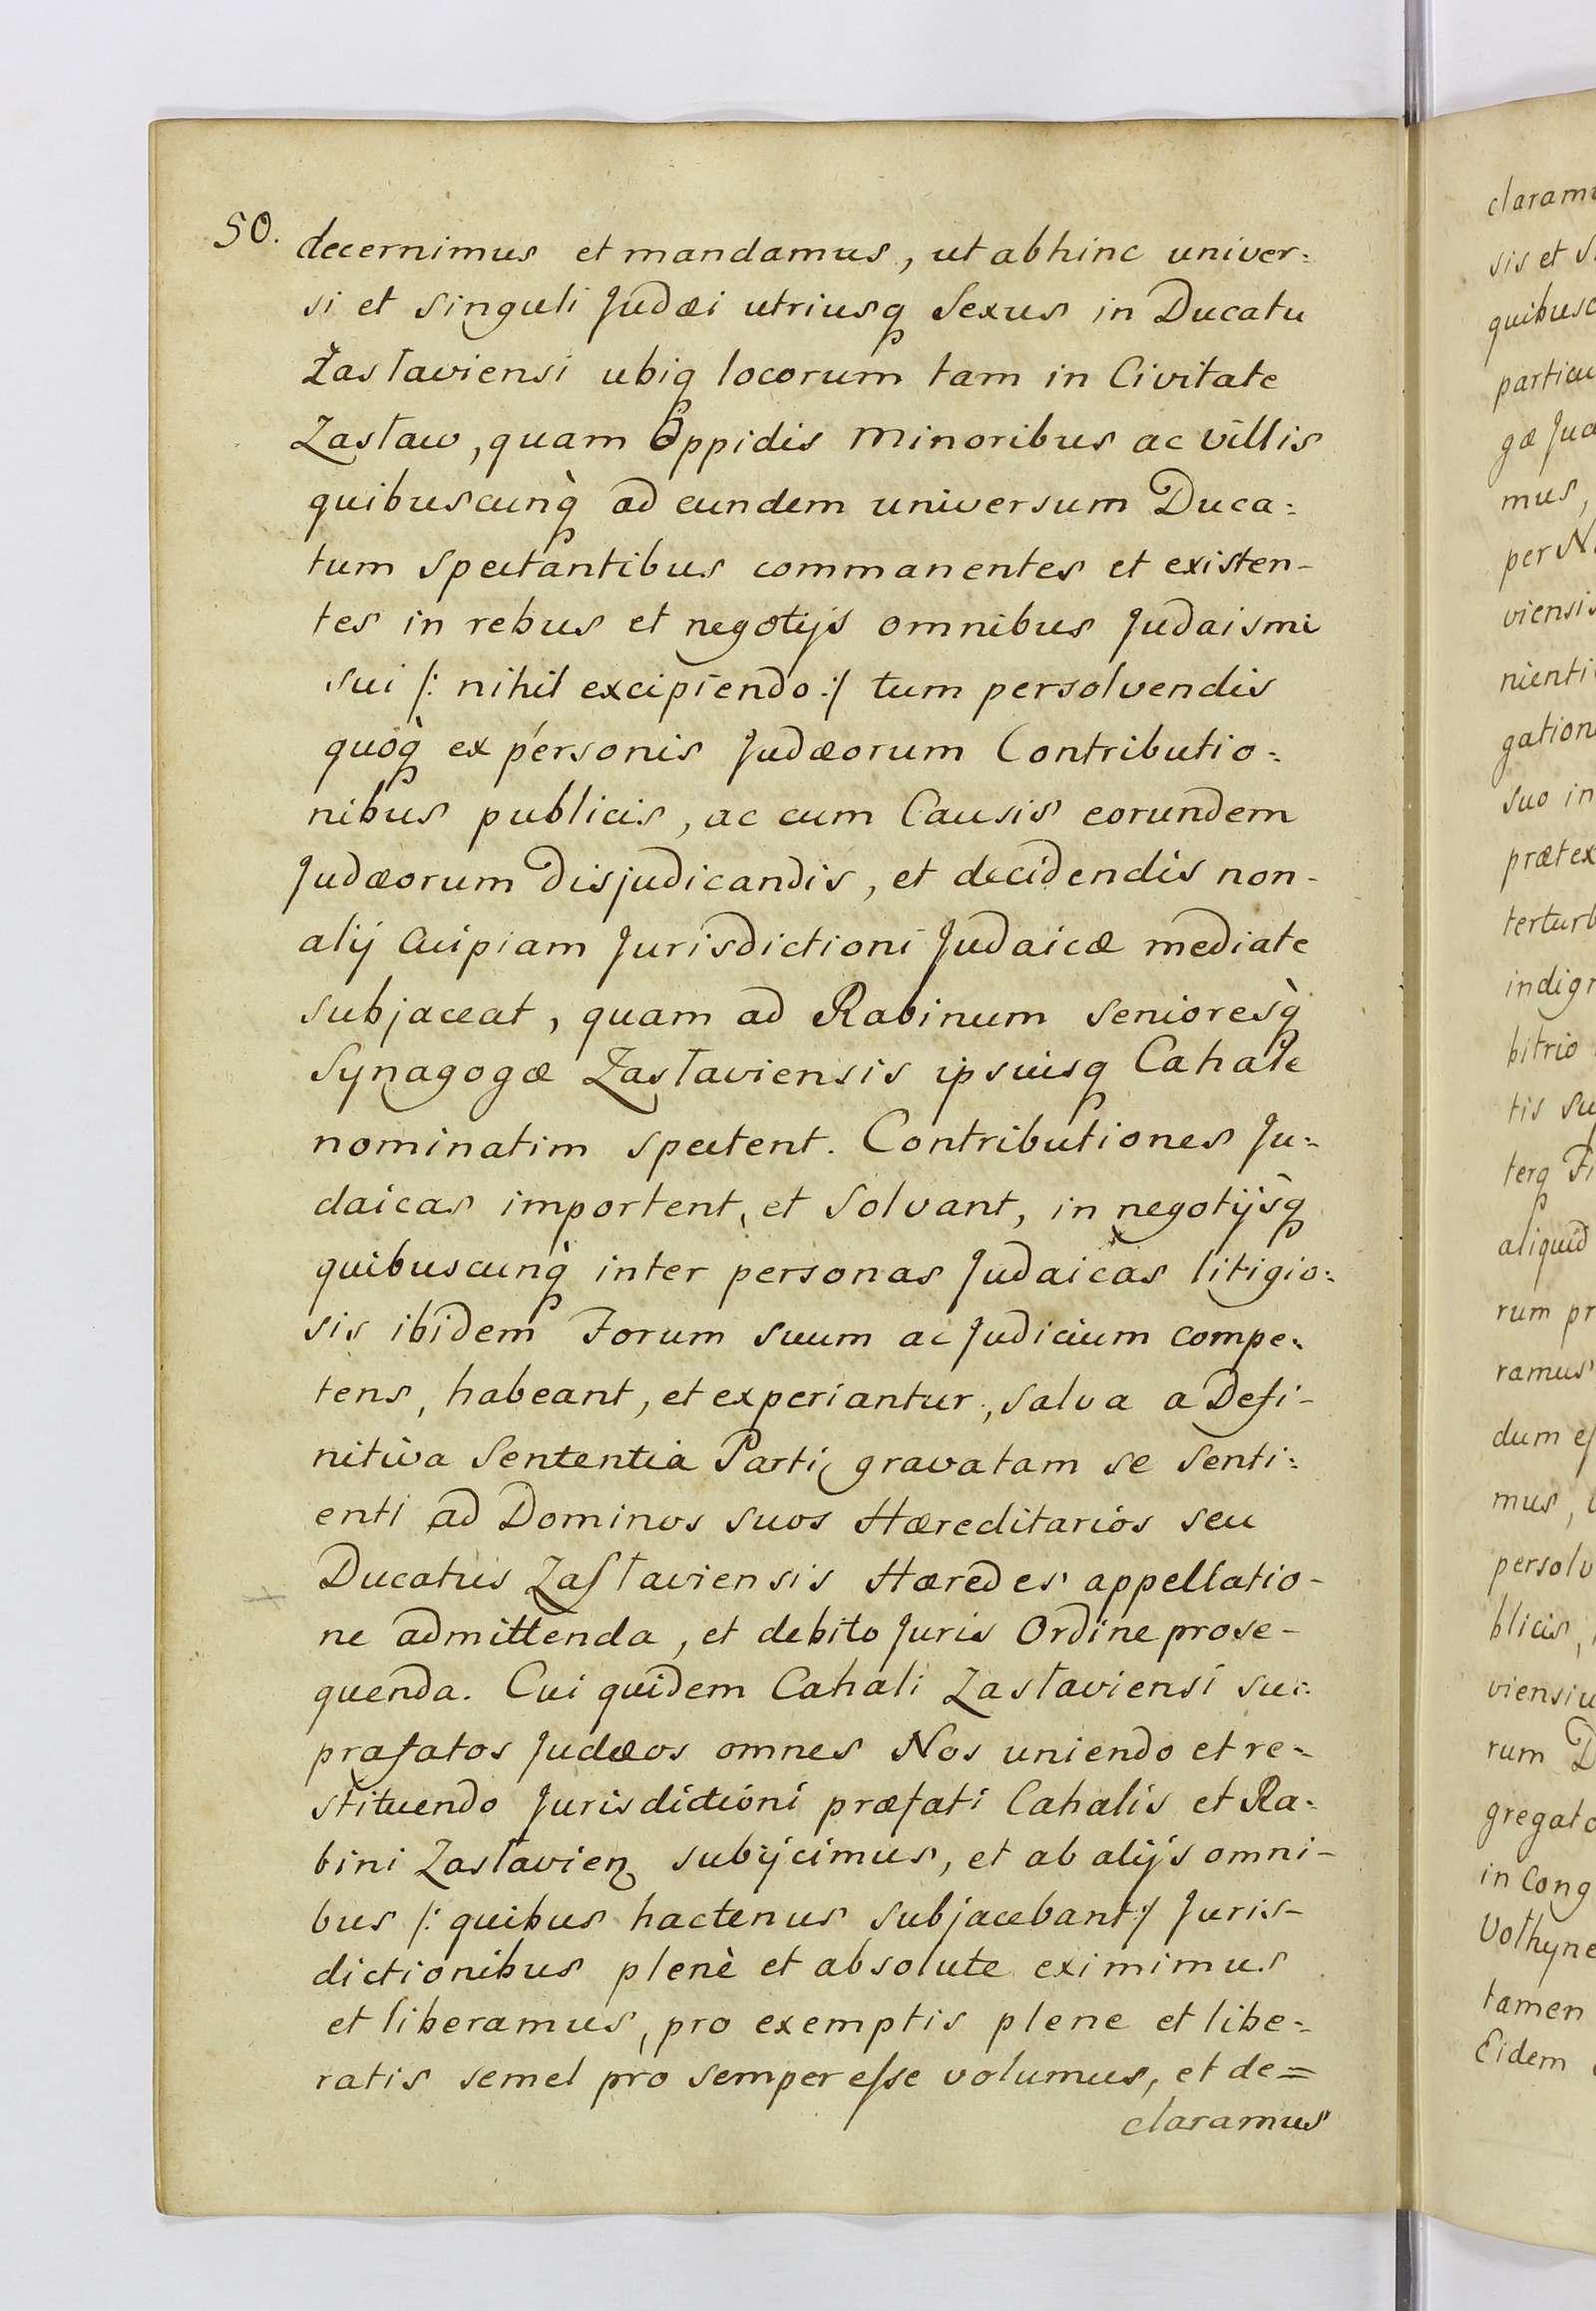 50.
decernimus et mandamus, ut abhinc univer:
si et singuli Judæi utriusq Sexus in Ducatu
Zasłaviensi ubiq locorum tam in Civitate
Zasław, quam Oppidis minoribus ac villis
quibuscunq̀ ad eundem universum Duca:
tum spectantibus commanentes et existen-
tes in rebus et negotijs omnibus Judaismi
sui /: nihil excipiendo :/ tum persolvendis
quoq̀ ex personis Judæorum Contributio:
nibus publicis, ac cum Causis eorundem
Judæorum disjudicandis, et decidendis non-
alij cuipiam Jurisdictioni Judaicæ mediate
subjaceat, quam ad Rabinum senioresq̀
Synagogæ Zasłaviensis ipsuisq Cahale
nominatim spectent. Contributiones Ju:
daicas importent, et solvant, in negotijsq̀
quibuscunq̀ inter personas Judaicas litigio:
sis ibidem Forum suum ac Judicium compe:
tens, habeant, et experiantur, salva a Defi-
nitiva Sententia Parti gravatam se senti:
enti ad Dominos suos Hæreditarios seu
Ducatus Zasłaviensis Hæredes appellatio-
ne admittenda, et debito Juris Ordine prose-
quenda. Cui quidem Cahali Zasłaviensi su:
prafatos Judæos omnes Nos uniendo et re:
stituendo Jurisdictioni præfati Cahalis et Ra:
bini Zasłavien subijcimus, et ab alijs omni-
bus /: quibus hactenus subjacebant :/ Juris-
dictionibus plenè et absolute eximimus
et liberamus, pro exemptis plene et libe:
ratis semel pro semper esse volumus, et de=
claramus
sis et
mus,
suo in
bitrio
rum pr
ramus
mus,
rum D
tamen
Eidem